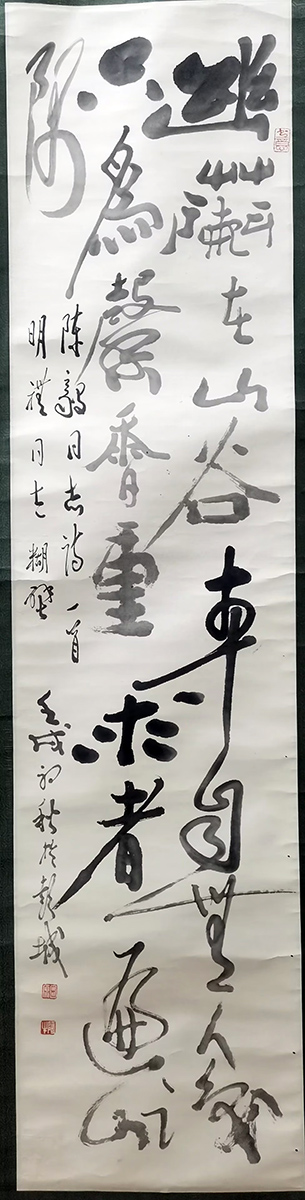 幽蘭在山谷本自無人識
只為馨香重求者遍山
隅
陳毅同志詩一首
明禮同志糊壁
壬戌初秋於彭城